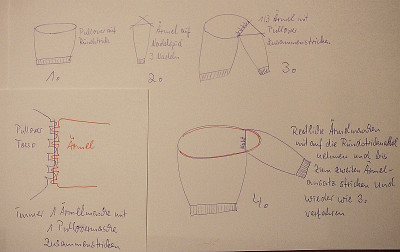 Pullover auf
Rundstrick
1.
Ärmel auf
Nadelspiel
3 Nadeln
2.
1/3 Ärmel mit
Pullover
zusammenstricken
3.
Pullover
Torso
Ärmel
Immer 1 Ärmelmasche mit
1 Pullovermasche
zusammenstricken
4.
Restliche Ärmelmaschen
mit auf die Rundstricknadel
nehmen und bis
zum zweiten Ärmel-
ansatz stricken und
wieder wie 3.
verfahren